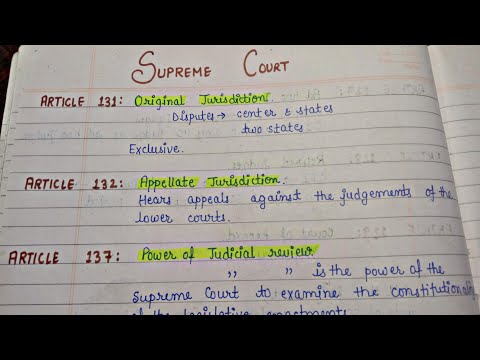 SUPREME COURT
ARTICLE 131: Original Jurisdiction.
Disputes → center & states
two states.
Exclusive.
ARTICLE 132: Appellate Jurisdiction.
Hears appeals against the judgements of the
lower courts.
ARTICLE 137: Power of Judicial review.
,, ,, is the power of the
Supreme Court to examine the constitutionality
of the legislative enactments